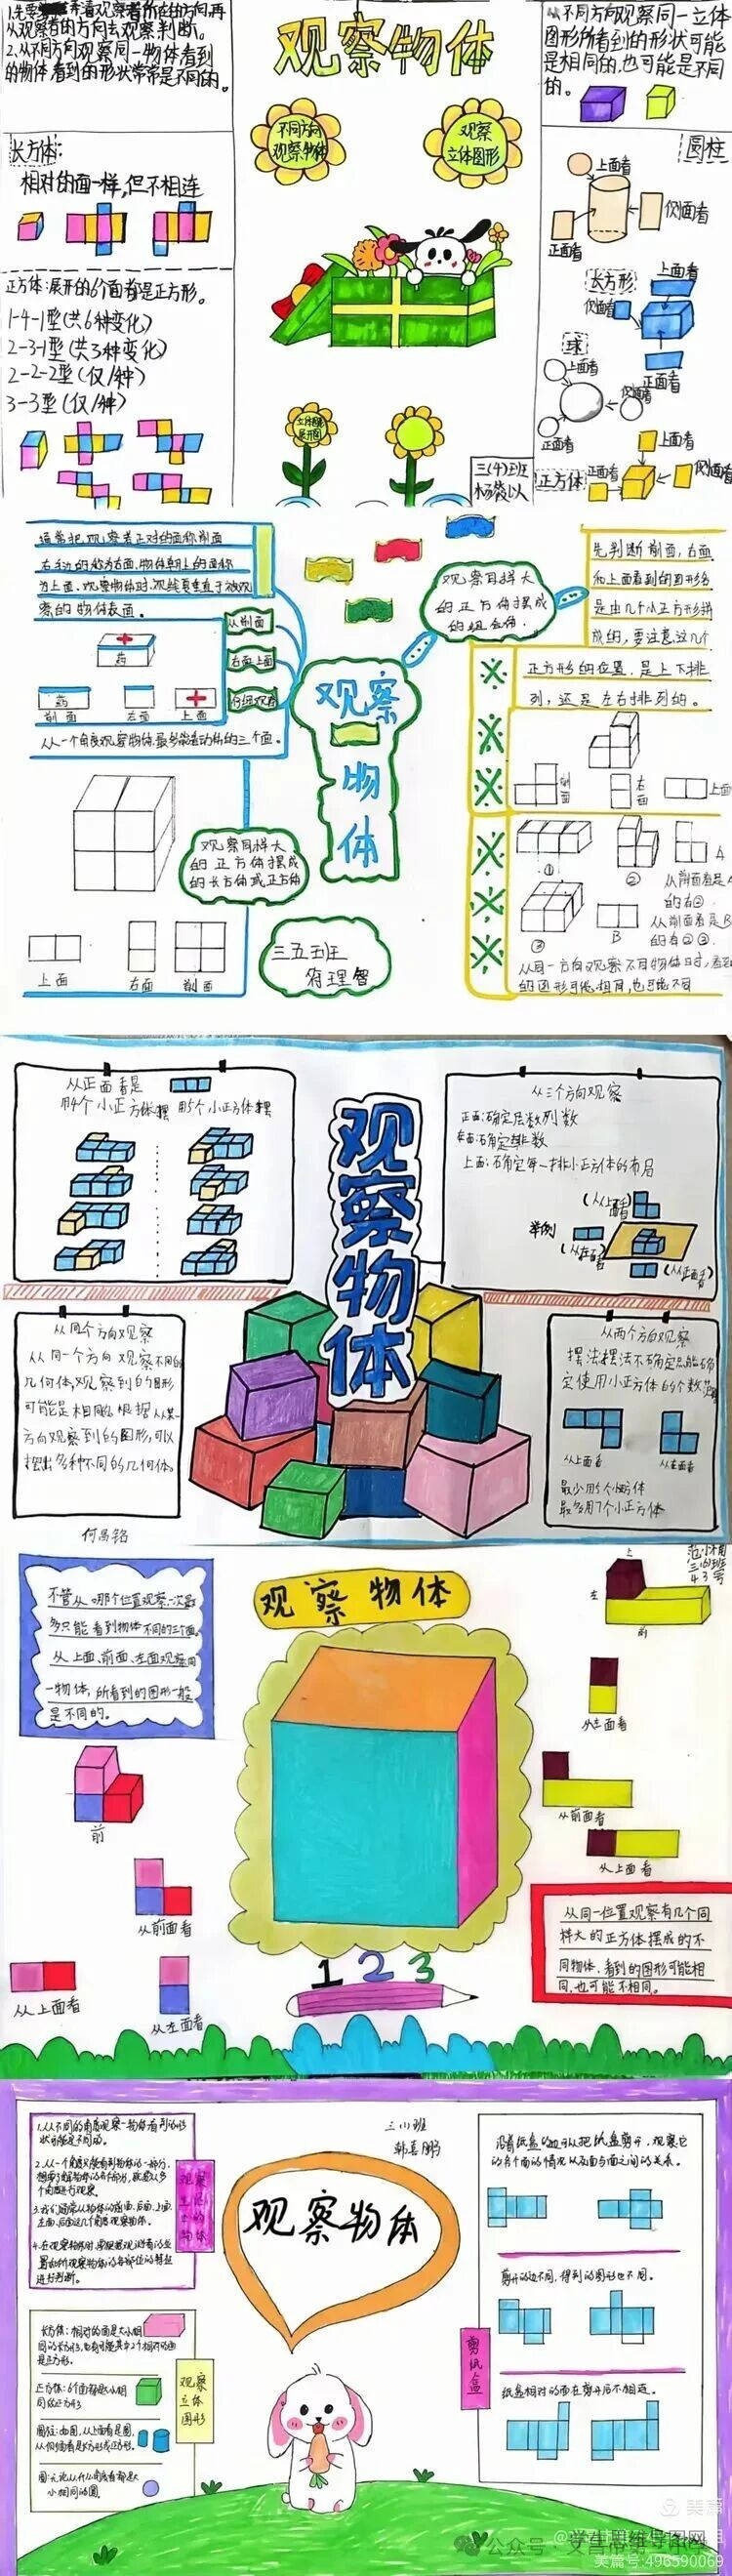 观察物体
从观察者的方向去观察判断。
2.从不同方向观察同一物体看到
的物体看到的形状常常是不同的。
不同方向
观察物体
观察
立体图形
从不同方向观察同一立体
图形所看到的形状可能
是相同的,也可能是不同
的。
长方体:
相对的面一样,但不相连
正方体:展开的6个面都是正方形。
1-4-1型(共6种变化)
2-3-1型(共3种变化)
2-2-2型(仅1种)
3-3型(仅1种)
圆柱
上面看
侧面看
正面看
长方形
上面看
侧面看
正面看
球
上面看
侧面看
正面看
正方体
上面看
正面看
侧面看
三(4)班
通常把观察者正对的面称前面
为上面.观察物体时,视线要垂直于被观
察的物体表面。
药
药
前面
左面
上面
从前面
右面上面
从一个角度观察物体最多能看到物体的三个面。
观察
物
体
观察同样大
的正方体摆成
的组合体.
先判断前面,右面
和上面看到的图形各
是由几个小正方形拼
成的,要注意这几个
正方形的位置,是上下排
列,还是左右排列的。
前面
右面
上面
观察同样大
的正方体摆成
的长方体或正方体
上面
右面
前面
三五班
符理智
①
②
A
③
B
从前面看是A
的有②.
从前面看是B
的有②③.
从同一方向观察不同物体时,看到
的图形可能相同,也可能不同
从正面看是
用4个小正方体摆 用5个小正方体摆
观察物体
从三个方向观察
正面:确定层数列数
左面:确定排数
上面:确定每一排小正方体的布局
举例
(从上面看)
(从左面看)
(从正面看)
从同个方向观察
从同一个方向观察不同的
几何体,观察到的图形
可能是相同,根据从某一
方向观察到的图形,可以
摆出多种不同的几何体。
何昌铭
从两个方向观察
摆法摆法不确定,只能确
定使用小正方体的个数范围
从上面看
从左面看
最少用5个小方体
最多用7个小正方体
不管从哪个位置观察,一次最
多只能看到物体不同的三个面。
从上面、前面、左面观察同
一物体,所看到的图形一般
是不同的。
观察物体
上
左
前
从左面看
从前面看
从上面看
前
从前面看
从上面看
从左面看
1 2 3
从同一位置观察有几个同
样大的正方体摆成的不
同物体,看到的图形可能相
同,也可能不相同。
1.从不同的角度观察一物体看到的形
状可能是不同的。
三(1)班
韩喜鹏
观察物体
沿着纸盒的边可以把纸盒剪开,观察它
的各个面的情况以及面与面之间的关系。
剪开的边不同,得到的图形也不同。
纸盒相对的面在剪开后不相连。
剪纸盒
长方体:相对的面是大小相
同的长方形,也有可能其中2个相对的面
是正方形。
正方体:6个面都是大小相
同的正方形
圆柱:如图,从上面看是圆,
从侧面看是长方形或正方形。
圆:无论从什么角度看都是大
小相同的圆。
观察
立体
图形
美篇
公众号·学生思维导图网
美篇号:496590069